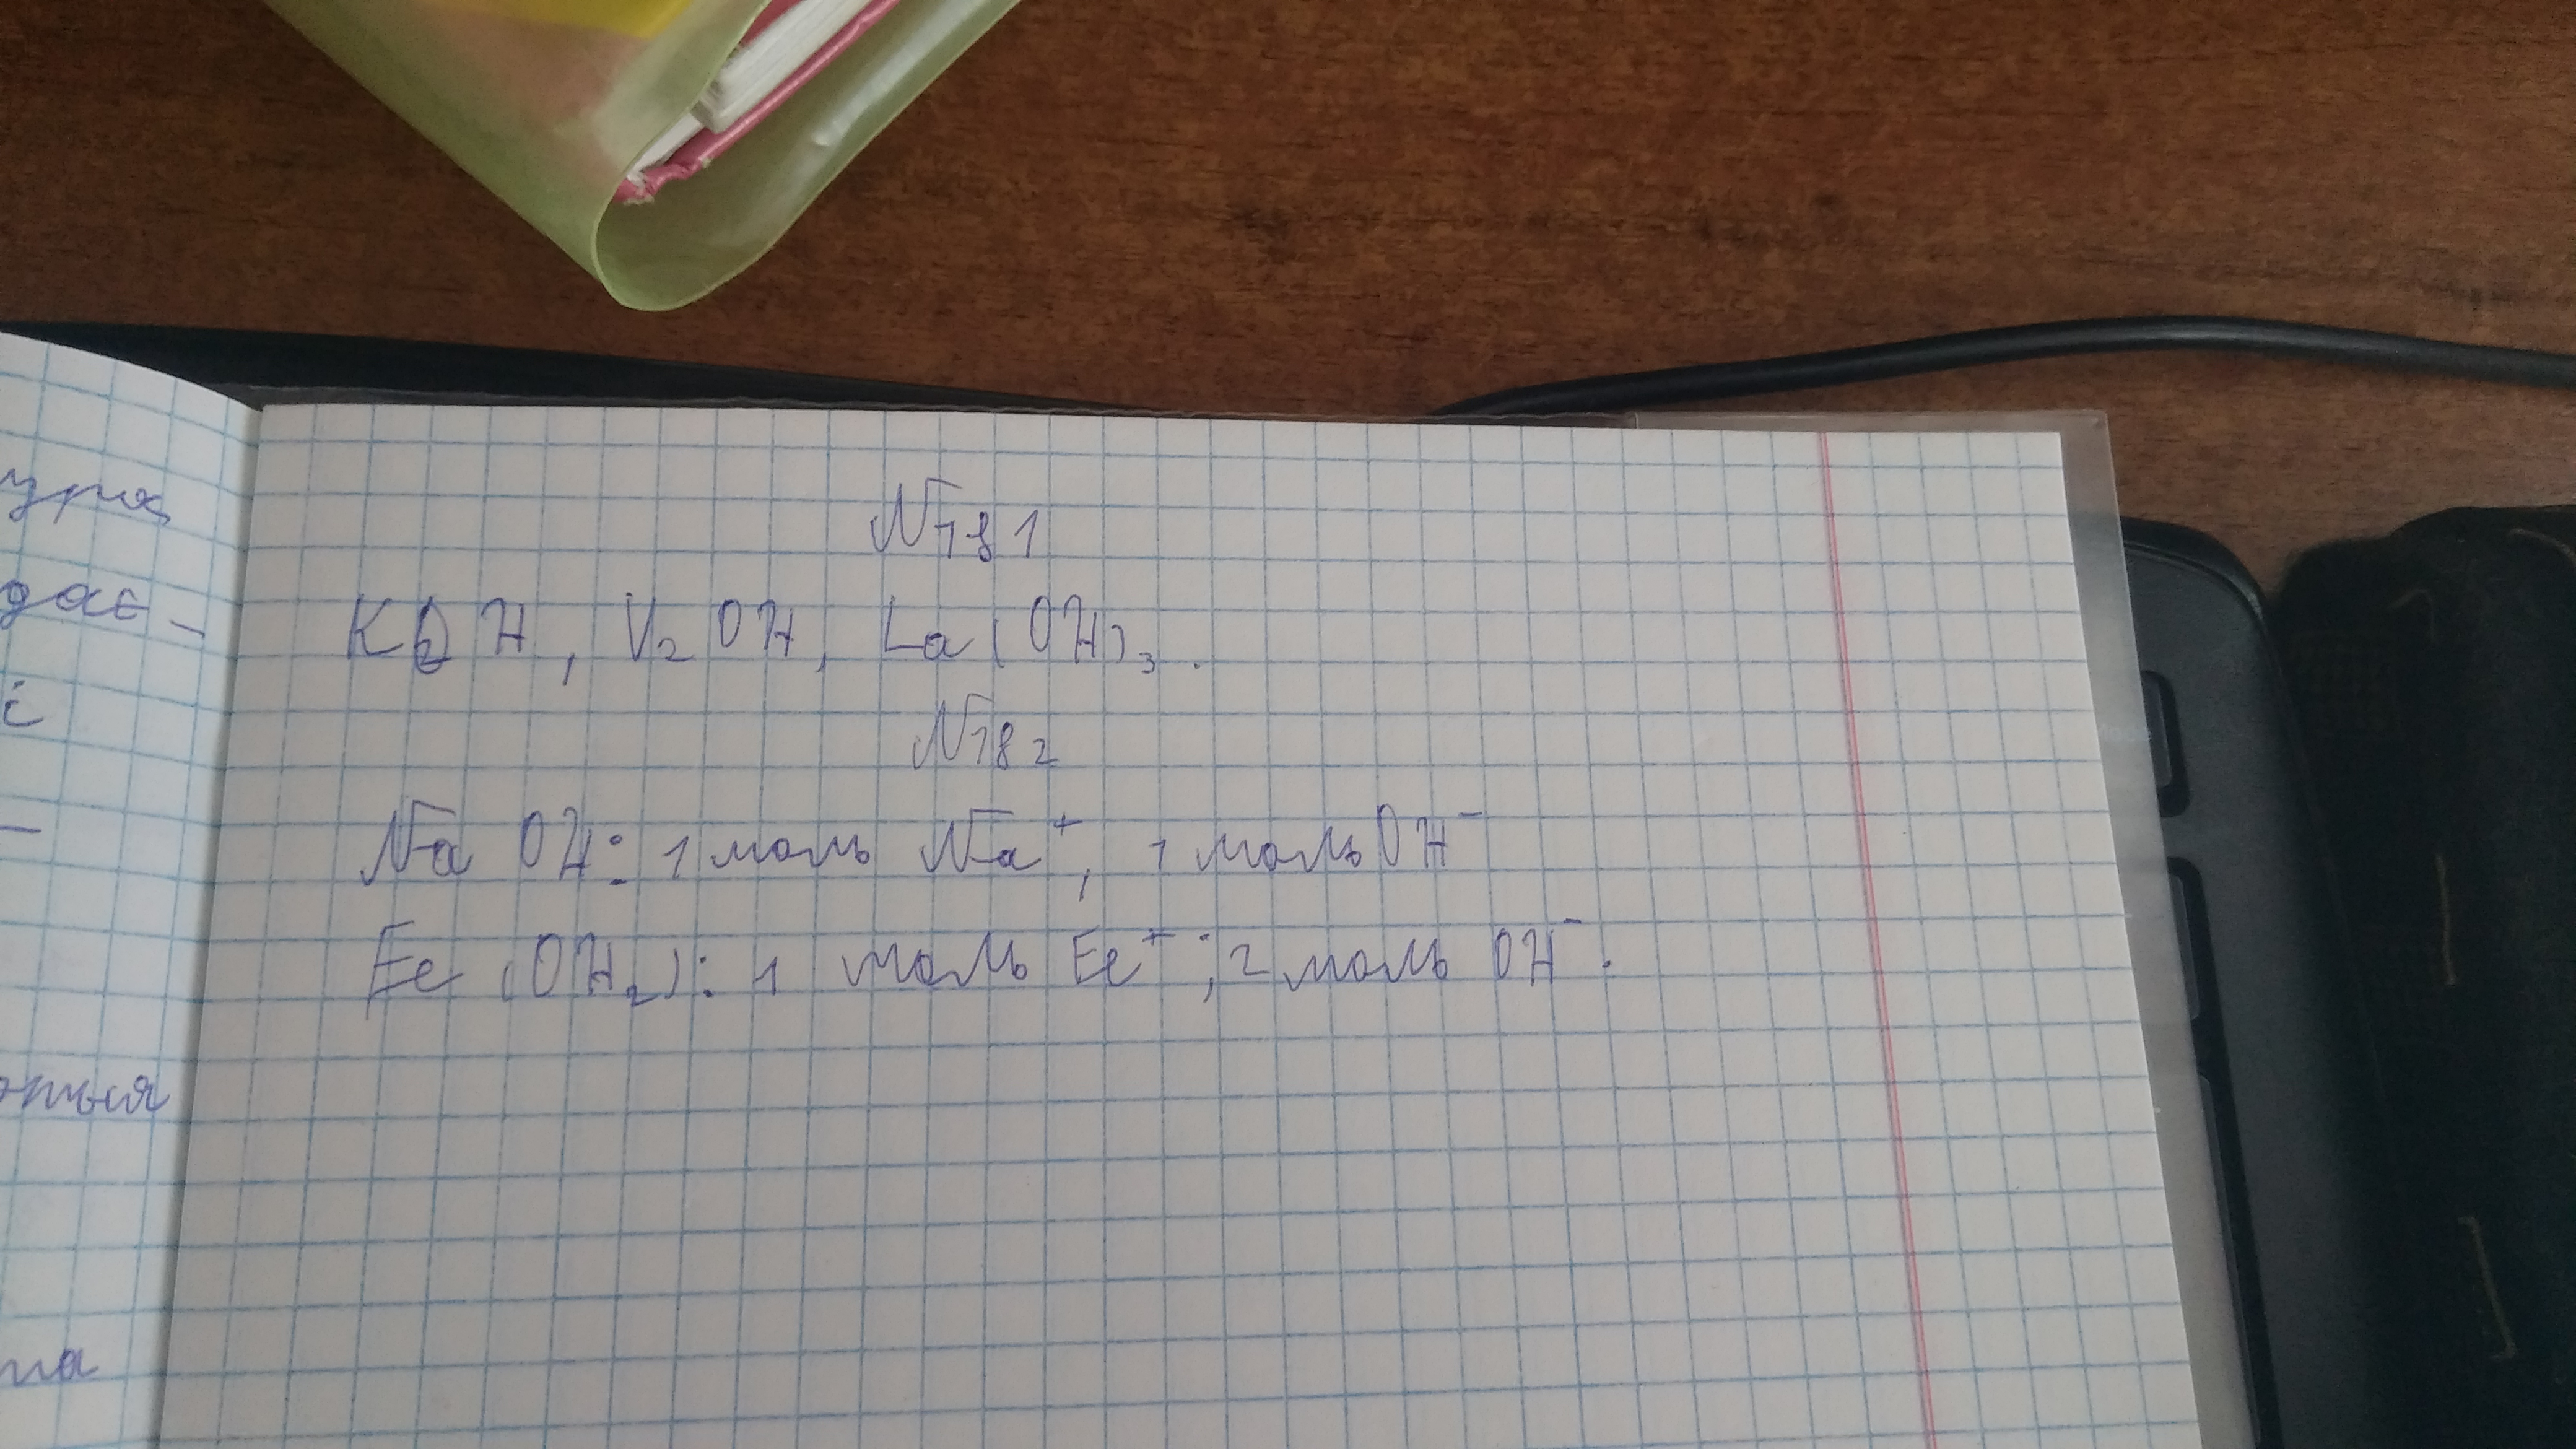 урах
дає-
і
-
ються
на
N181
KOH, V₂OH, La(OH)₃.
N182
NaOH: 1 моль Na⁺, 1 моль OH⁻
Fe(OH₂): 1 моль Fe⁺; 2 моль OH⁻.